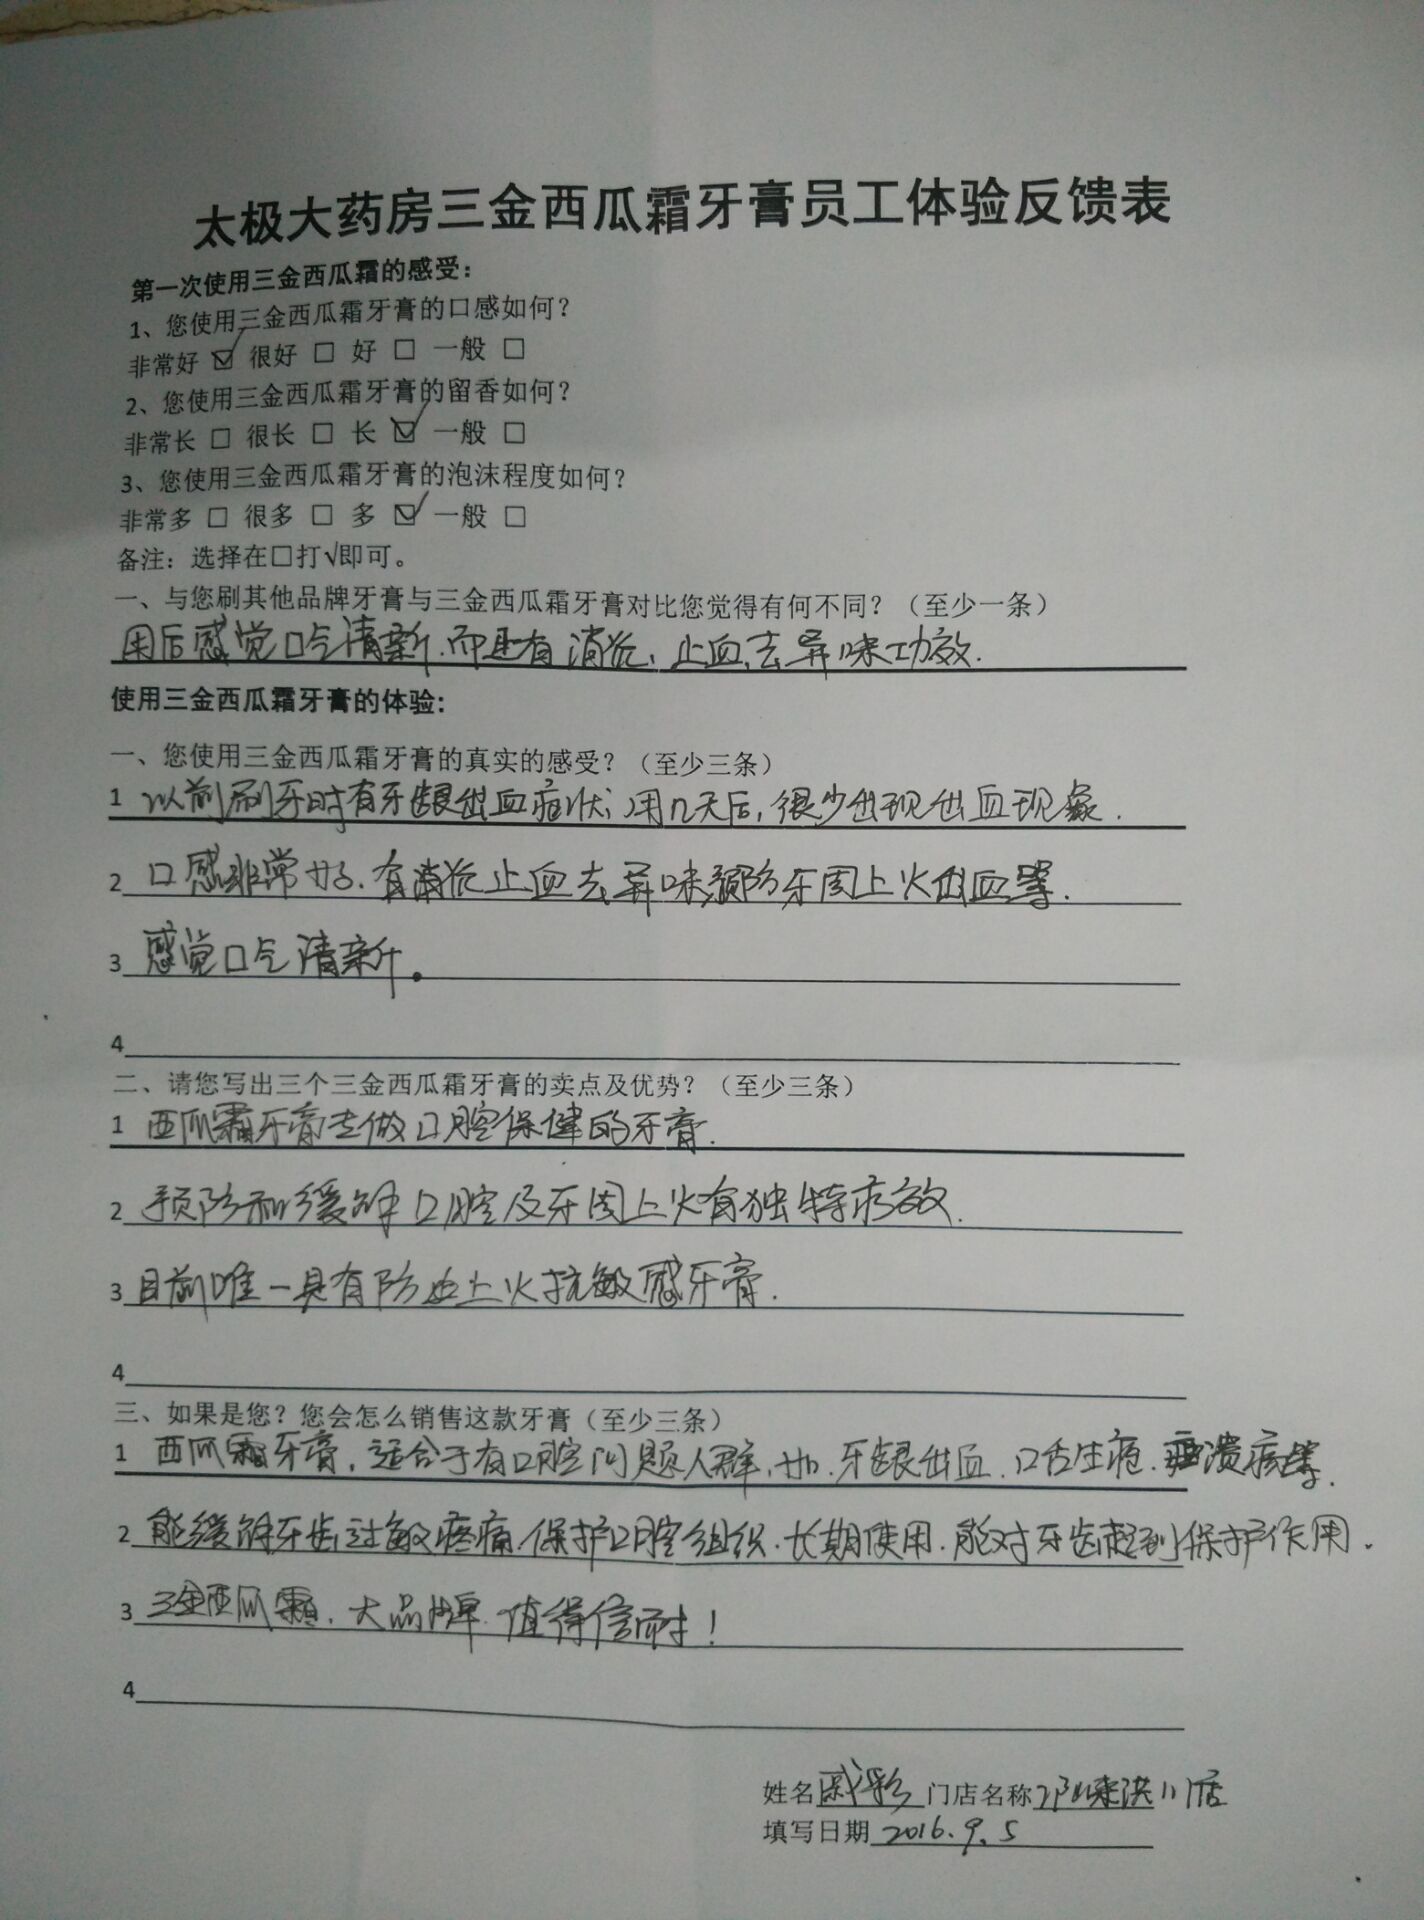 太极大药房三金西瓜霜牙膏员工体验反馈表
第一次使用三金西瓜霜的感受：
1、您使用三金西瓜霜牙膏的口感如何？
非常好 ☑ 很好 □ 好 □ 一般 □
2、您使用三金西瓜霜牙膏的留香如何？
非常长 □ 很长 □ 长 ☑ 一般 □
3、您使用三金西瓜霜牙膏的泡沫程度如何？
非常多 □ 很多 □ 多 ☑ 一般 □
备注：选择在□打√即可。
一、与您刷其他品牌牙膏与三金西瓜霜牙膏对比您觉得有何不同？（至少一条）
用后感觉口气清新.而且有消炎、止血、去异味功效.
使用三金西瓜霜牙膏的体验:
一、您使用三金西瓜霜牙膏的真实的感受？（至少三条）
1 以前刷牙时有牙龈出血症状,用几天后,很少出现出血现象.
2 口感非常好.有消炎止血去异味预防牙周上火出血等.
3 感觉口气清新.
4
二、请您写出三个三金西瓜霜牙膏的卖点及优势？（至少三条）
1 西瓜霜牙膏去做口腔保健的牙膏.
2 预防和缓解口腔及牙周上火有独特疗效.
3 目前唯一具有防止上火抗敏感牙膏.
4
三、如果是您？您会怎么销售这款牙膏（至少三条）
1 西瓜霜牙膏,适合于有口腔问题人群,如.牙龈出血.口舌生疮.溃疡等.
2 能缓解牙齿过敏疼痛.保护口腔组织.长期使用.能对牙齿起到保护作用.
3 三金西瓜霜.大品牌.值得信耐！
4
姓名 戚彩 门店名称 邛崃洪川店
填写日期 2016.9.5